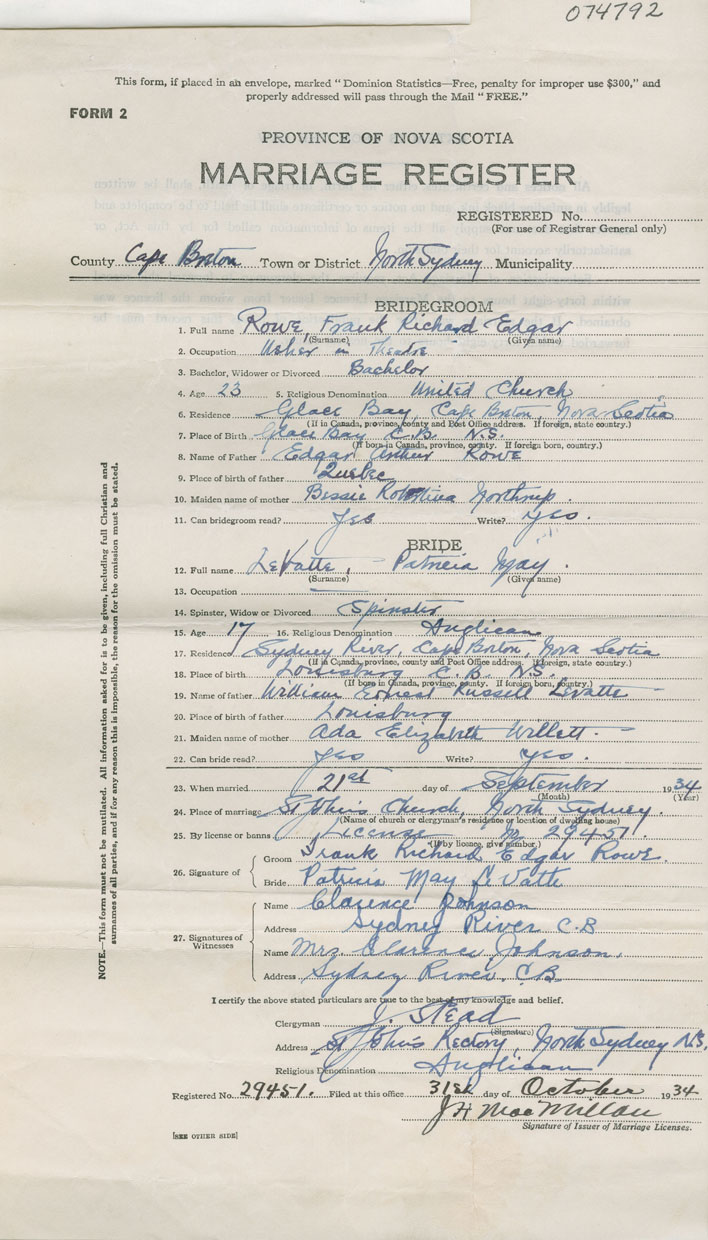 074792
This form, if placed in an envelope, marked “Dominion Statistics—Free, penalty for improper use $300,” and
properly addressed will pass through the Mail “FREE.”
FORM 2
PROVINCE OF NOVA SCOTIA
MARRIAGE REGISTER
REGISTERED No.
(For use of Registrar General only)
County Cape Breton Town or District North Sydney Municipality
BRIDEGROOM
1. Full name Rowe, Frank Richard Edgar
(Surname) (Given name)
2. Occupation Usher in Theatre
3. Bachelor, Widower or Divorced Bachelor
4. Age 23 5. Religious Denomination United Church
6. Residence Glace Bay, Cape Breton, Nova Scotia
(If in Canada, province, county and Post Office address. If foreign, state country.)
7. Place of Birth Glace Bay C.B. N.S.
(If born in Canada, province, county. If foreign born, country.)
8. Name of Father Edgar Arthur Rowe
9. Place of birth of father Quebec
10. Maiden name of mother Bessie Northrup.
11. Can bridegroom read? Yes Write? Yes.
BRIDE
12. Full name LeVatte, - Patricia May.
(Surname) (Given name)
13. Occupation
14. Spinster, Widow or Divorced Spinster
15. Age 17 16. Religious Denomination Anglican
17. Residence Sydney River, Cape Breton, Nova Scotia
(If in Canada, province, county and Post Office address. If foreign, state country.)
18. Place of birth Louisburg C.B. N.S.
(If born in Canada, province, county. If foreign born, country.)
19. Name of father William Ernest Russell Levatte
20. Place of birth of father Louisburg
21. Maiden name of mother Ada Elizabeth Willett.
22. Can bride read? Yes Write? Yes.
23. When married 21st day of September 1934
(Month) (Year)
24. Place of marriage St John's Church, North Sydney.
(Name of church or clergyman's residence or location of dwelling house)
25. By license or banns License No 29451.
(If by licence, give number.)
26. Signature of
Groom Frank Richard Edgar Rowe.
Bride Patricia May LeVatte
27. Signatures of Witnesses
Name Clarence Johnson
Address Sydney River C.B
Name Mrs. Clarence Johnson.
Address Sydney River, C.B.
I certify the above stated particulars are true to the best of my knowledge and belief.
Clergyman J. Stead
(Signature)
Address St John's Rectory, North Sydney N.S.
Religious Denomination Anglican
Registered No. 29451. Filed at this office 31st day of October 1934
J H MacMillan
Signature of Issuer of Marriage Licenses.
[SEE OTHER SIDE]
NOTE.—This form must not be mutilated. All information asked for is to be given, including full Christian and
surnames of all parties, and if for any reason this is impossible, the reason for the omission must be stated.